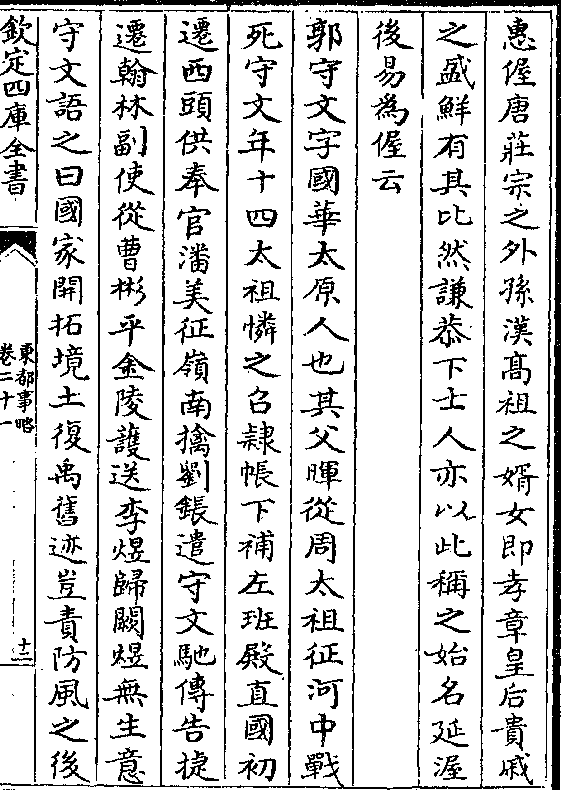 惠偓唐莊宗之外孫漢髙祖之婿女即孝章皇后貴戚
之盛鮮有其比然謙恭下士人亦以此稱之始名延渥
後易為偓云
郭守文字國華太原人也其父暉從周太祖征河中戰
死守文年十四太祖憐之召隷帳下補左班殿直國初
遷西頭供奉官潘美征嶺南擒劉鋹遣守文馳傳告捷
遷翰林副使從曹彬平金陵護送李煜歸闕煜無生意
守文語之曰國家開拓境土復禹舊迹豈責防風之後
欽定四庫全書
東都事略
卷二十一
十二